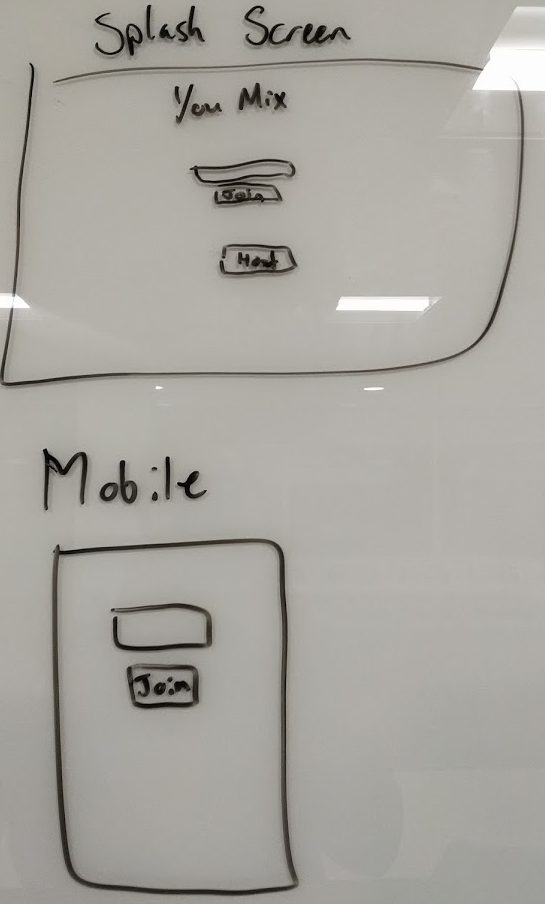 Splash Screen
You Mix
Join
Host
Mobile
Join